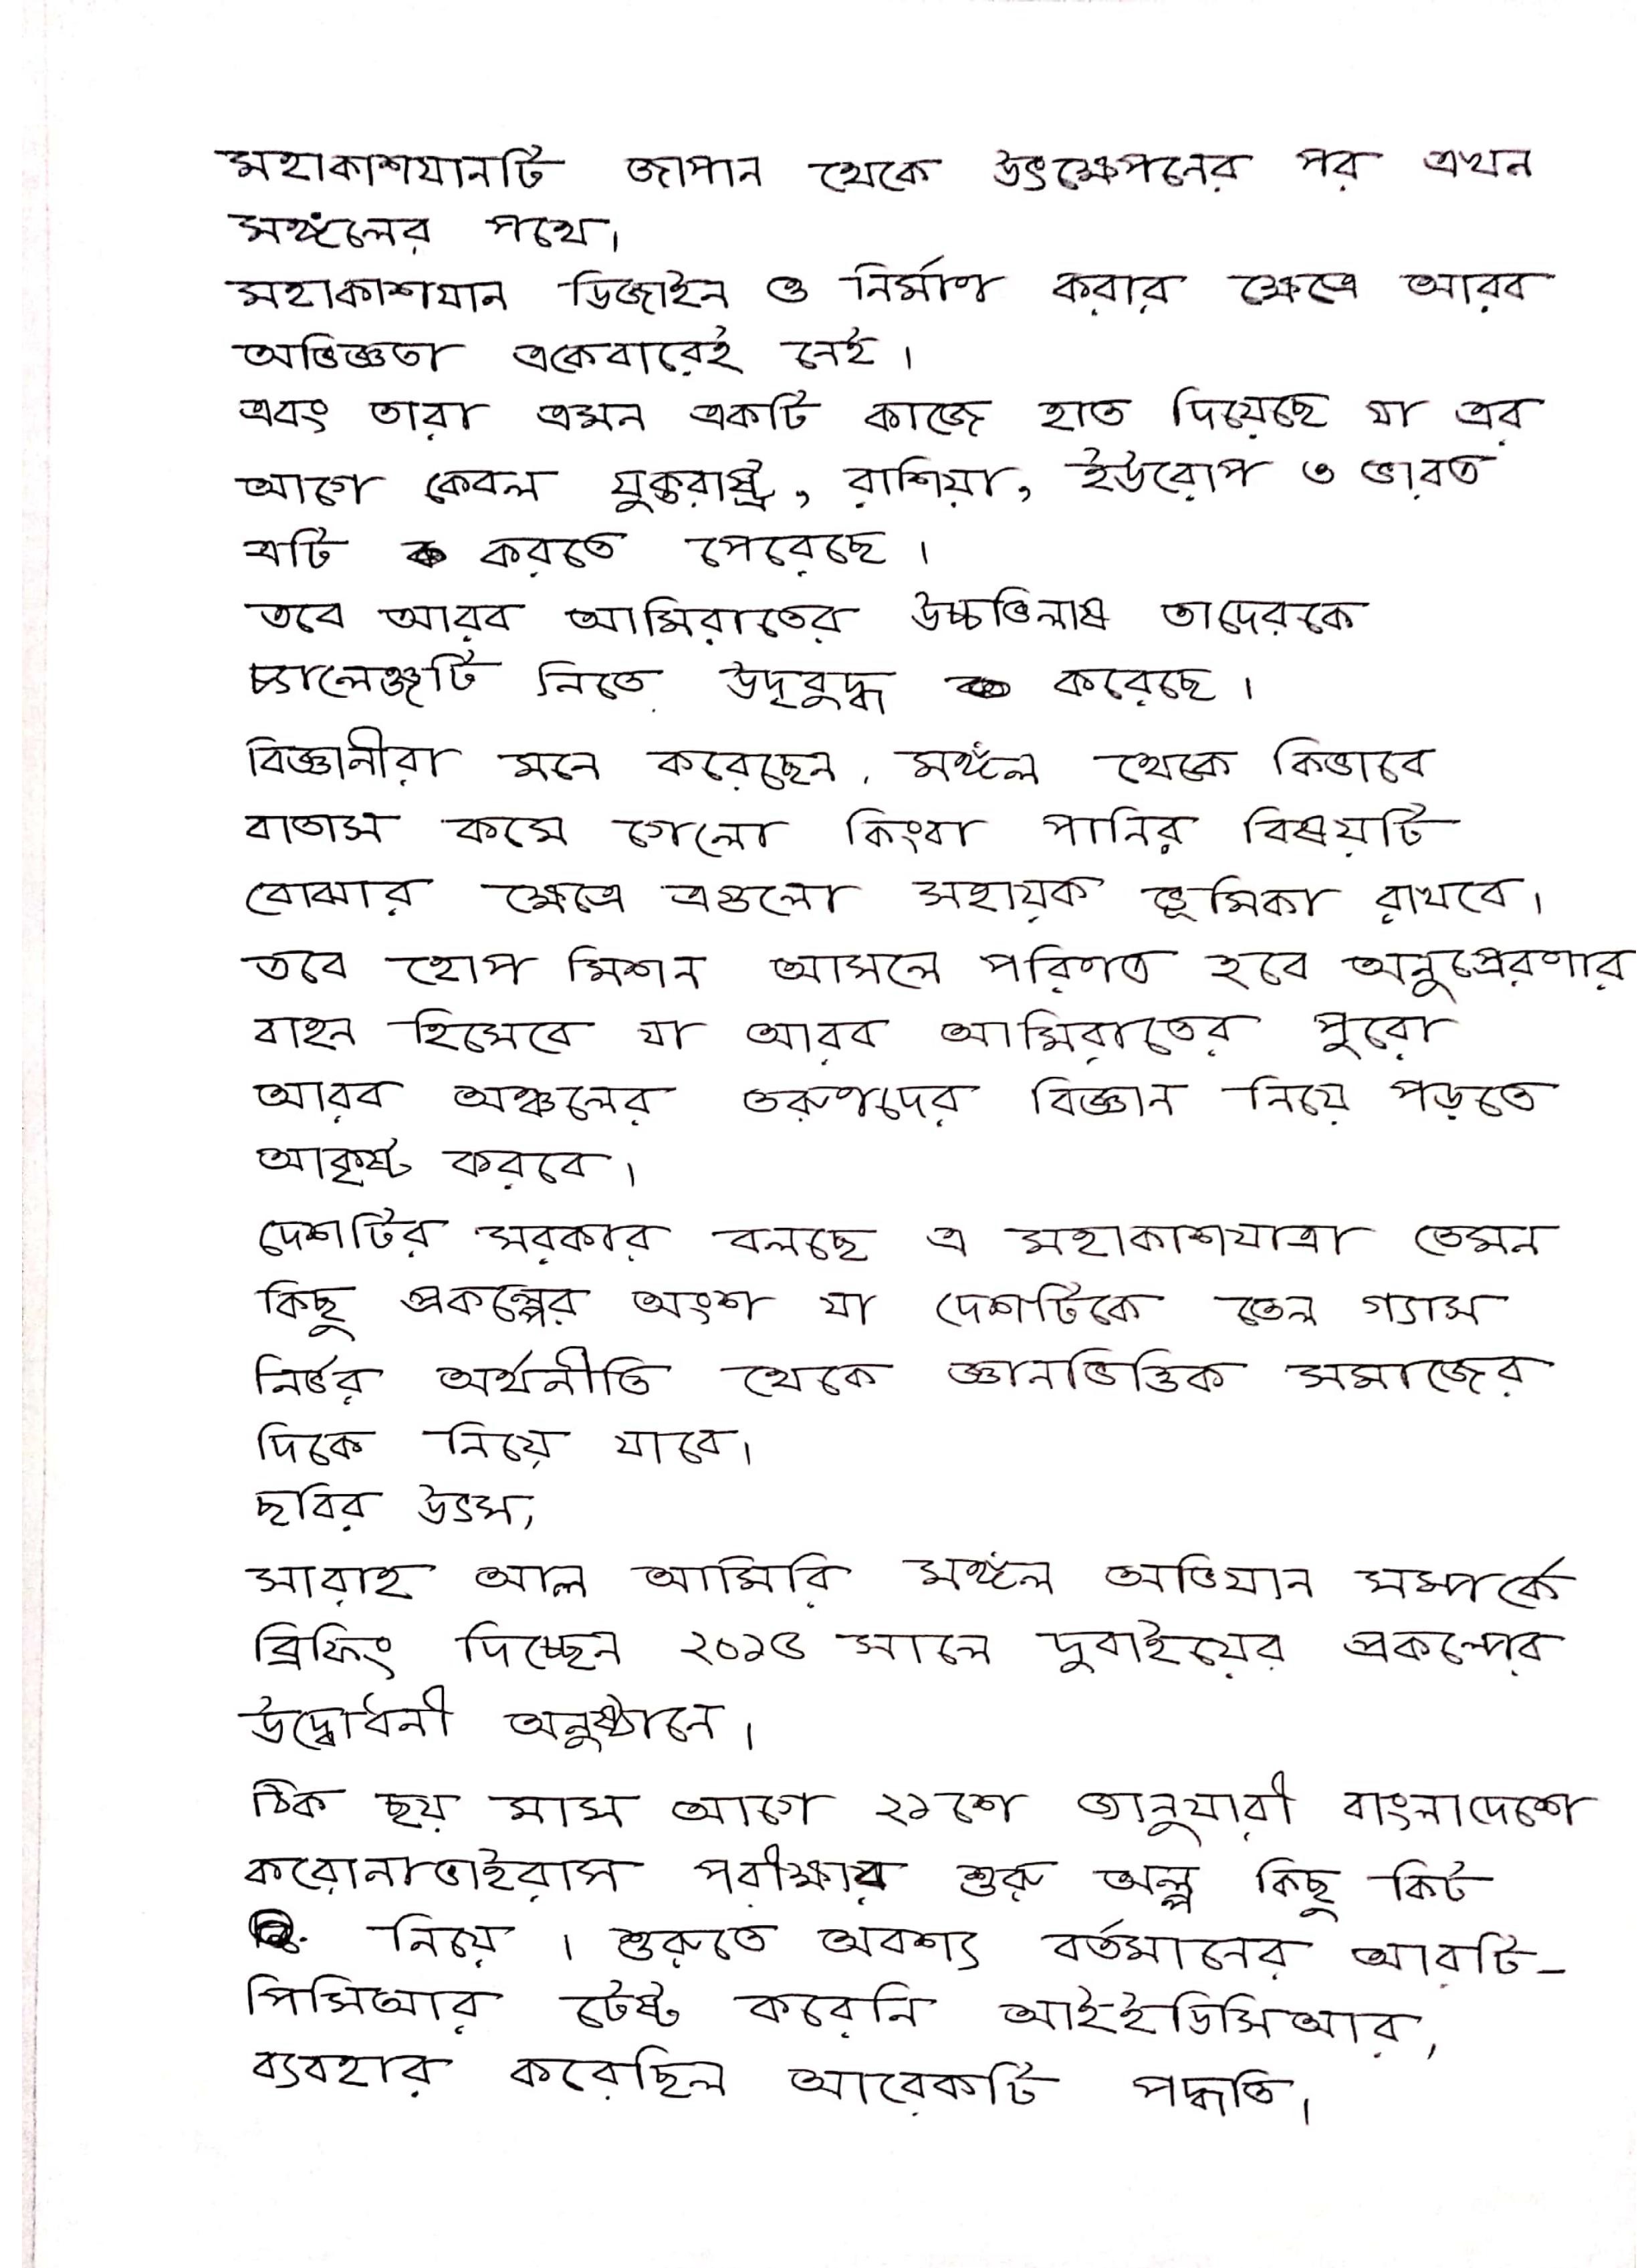 মহাকাশযানটি জাপান থেকে উৎক্ষেপনের পর এখন
মঙ্গলের পথে।
মহাকাশযান ডিজাইন ও নির্মাণ করার ক্ষেত্রে আরব
অভিজ্ঞতা একেবারেই নেই।
এবং তারা এমন একটি কাজে হাত দিয়েছে যা এর
আগে কেবল যুক্তরাষ্ট্র, রাশিয়া, ইউরোপ ও ভারত
এটি করতে পেরেছে।
তবে আরব আমিরাতের উচ্চভিলাষ তাদেরকে
চ্যালেঞ্জটি নিতে উদ্বুদ্ধ করেছে।
বিজ্ঞানীরা মনে করেছেন, মঙ্গল থেকে কিভাবে
বাতাস কমে গেলো কিংবা পানির বিষয়টি
বোঝার ক্ষেত্রে এগুলো সহায়ক ভূমিকা রাখবে।
তবে হোপ মিশন আসলে পরিণত হবে অনুপ্রেরণার
বাহন হিসেবে যা আরব আমিরাতের পুরো
আরব অঞ্চলের তরুণদের বিজ্ঞান নিয়ে পড়তে
আকৃষ্ট করবে।
দেশটির সরকার বলছে এ মহাকাশযাত্রা তেমন
কিছু প্রকল্পের অংশ যা দেশটিকে তেল গ্যাস
নির্ভর অর্থনীতি থেকে জ্ঞানভিত্তিক সমাজের
দিকে নিয়ে যাবে।
ছবির উৎস,
সারাহ আল আমিরি মঙ্গল অভিযান সম্পর্কে
ব্রিফিং দিচ্ছেন ২০১৫ সালে দুবাইয়ের প্রকল্পের
উদ্বোধনী অনুষ্ঠানে।
ঠিক ছয় মাস আগে ২১শে জানুয়ারী বাংলাদেশে
করোনাভাইরাস পরীক্ষার শুরু অল্প কিছু কিট
নিয়ে। শুরুতে অবশ্য বর্তমানের আরটি-
পিসিআর টেষ্ট করেনি আইইডিসিআর,
ব্যবহার করেছিল আরেকটি পদ্ধতি।